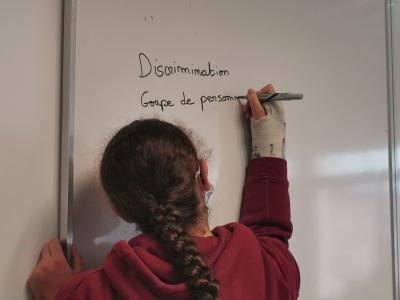 Discrimination
Goupe de personn